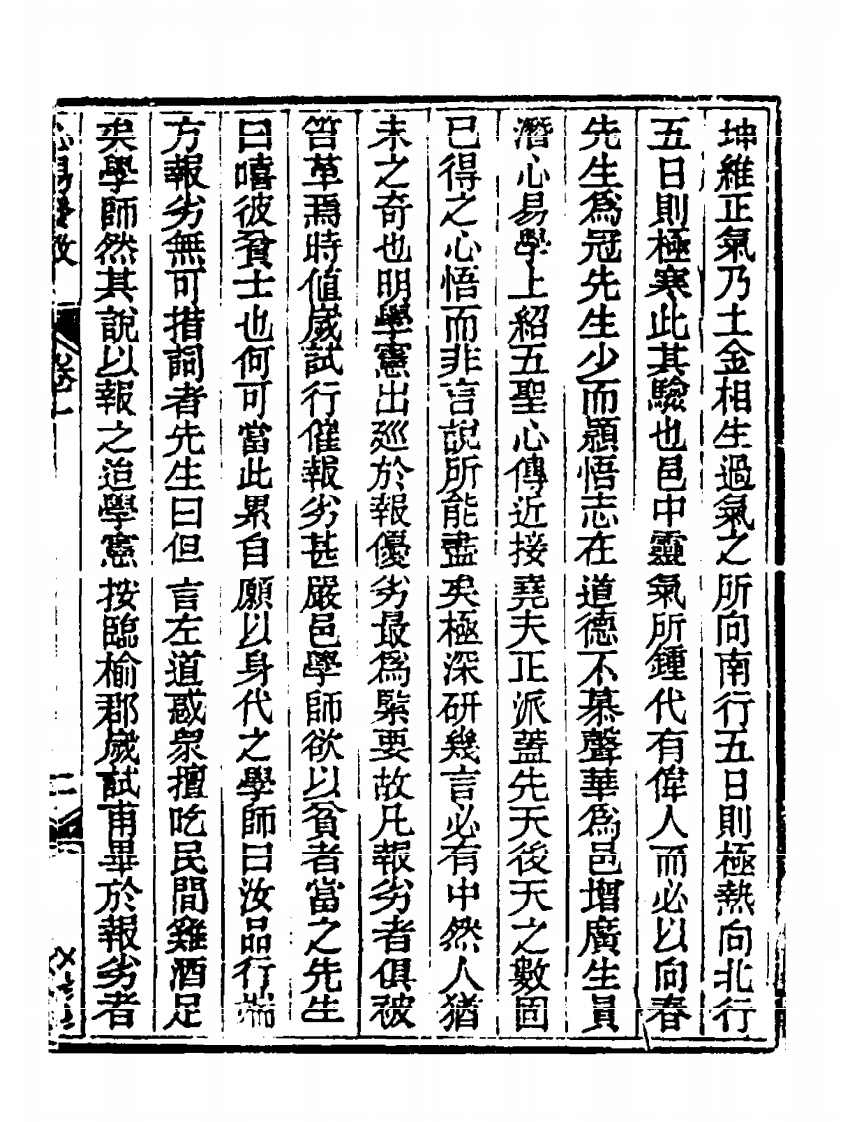 坤維正氣乃土金相生過氣之所向南行五日則極熱向北行
五日則極寒此其驗也邑中靈氣所鍾代有偉人而必以向春
先生爲冠先生少而顯悟志在道德不慕聲華爲邑增廣生員
潛心易學上紹五聖心傳近接堯夫正派蓋先天後天之數固
已得之心悟而非言說所能盡矣極深研幾言必有中然人猶
未之奇也明學憲出廵於報優劣最爲緊要故凡報劣者俱被
笞革焉時値嵗試行催報劣甚嚴邑學師欲以貧者當之先生
曰嘻彼貧士也何可當此累自願以身代之學師曰汝品行端
方報劣無可措詞者先生曰但言左道惑衆擅吃民間雞酒足
矣學師然其說以報之迨學憲按臨榆郡嵗試甫畢於報劣者
卷一
二